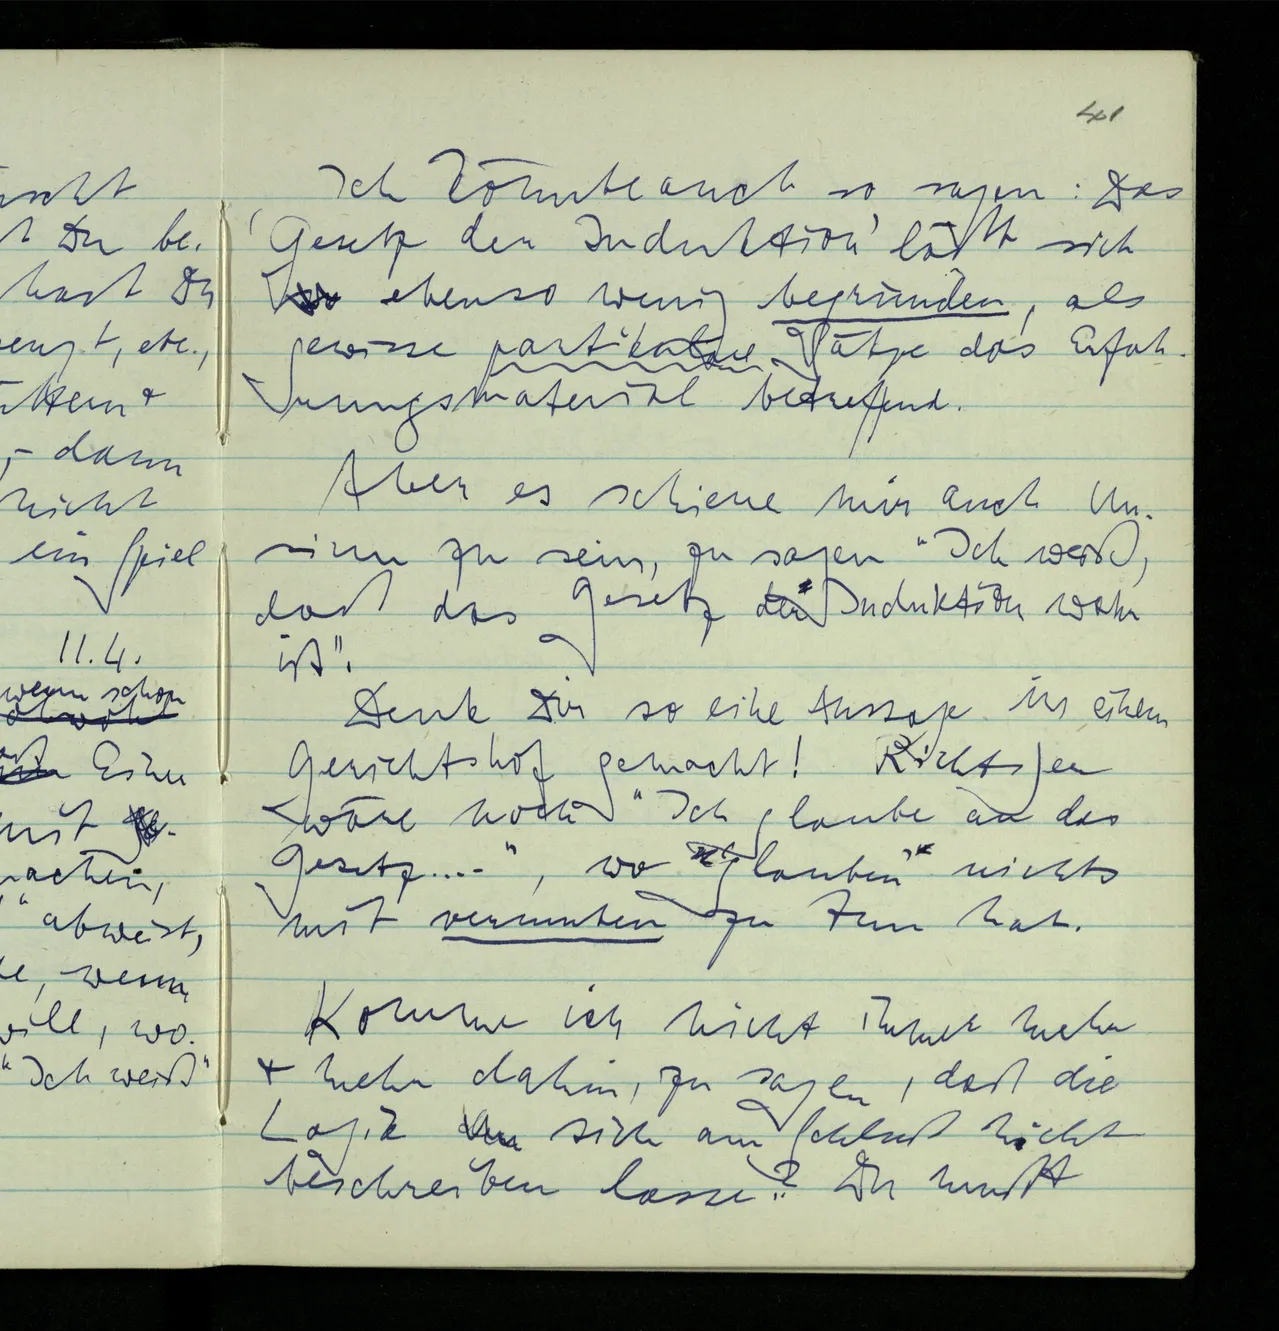 41
scht
Du be-
hast Du
zeugt, etc.,
ttern &
– dann
nicht
ein Spiel
11.4.
wenn schon
obwohl
Einer
mit
machen,
" abweist,
te, wenn
will, wo-
"Ich weiß"
Ich könnte auch so sagen: Das
'Gesetz der Induktion' läßt sich
ebenso wenig begründen, als
gewisse partikulare Sätze das Erfah-
rungsmaterial betreffend.
Aber es schiene mir auch Un-
sinn zu sein, zu sagen "Ich weiß,
daß das Gesetz der Induktion wahr
ist".
Denk Dir so eine Aussage in einem
Gerichtshof gemacht! Richtiger
wäre noch "Ich glaube an das
Gesetz....", wo "glauben" nichts
mit vermuten zu tun hat.
Komme ich nicht immer mehr
& mehr dahin, zu sagen, daß die
Logik sich am Schluß nicht
beschreiben lasse? Du mußt